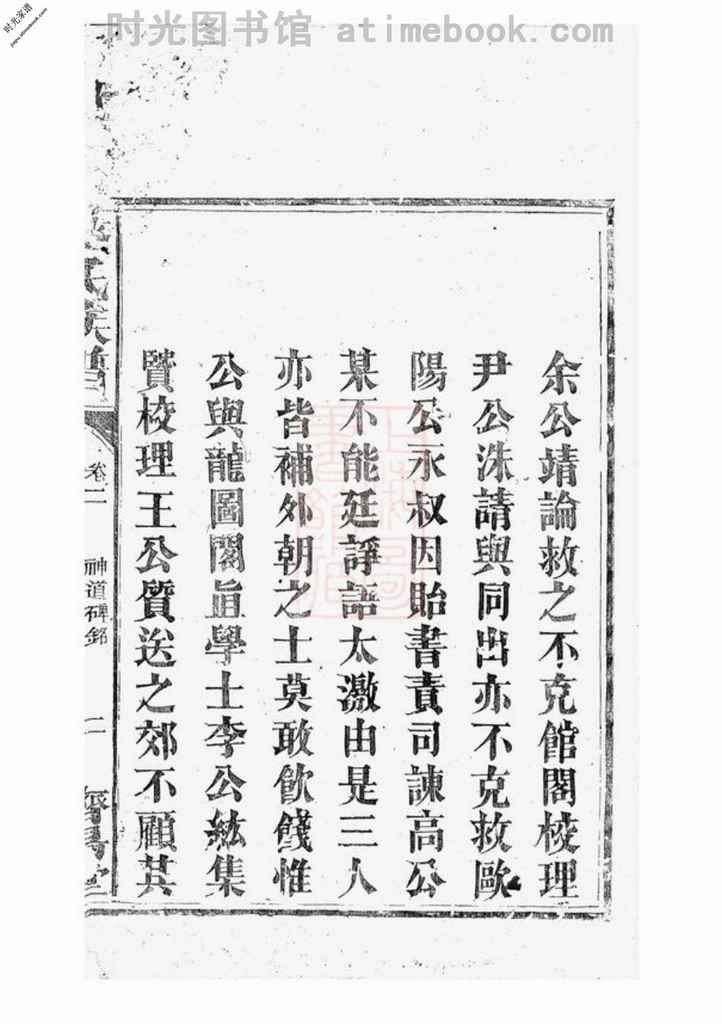 时光图书馆 atimebook.com
时光家谱
jiapu.atimebook.com
余公靖論救之不克館閣校理
尹公洙請與同出亦不克救歐
陽公永叔因貽書責司諫高公
某不能廷諍語太激由是三人
亦皆補外朝之士莫敢飲餞惟
公與龍圖閣直學士李公紘集
賢校理王公質送之郊不顧其
氏族譜
卷二
神道碑銘
二
堂